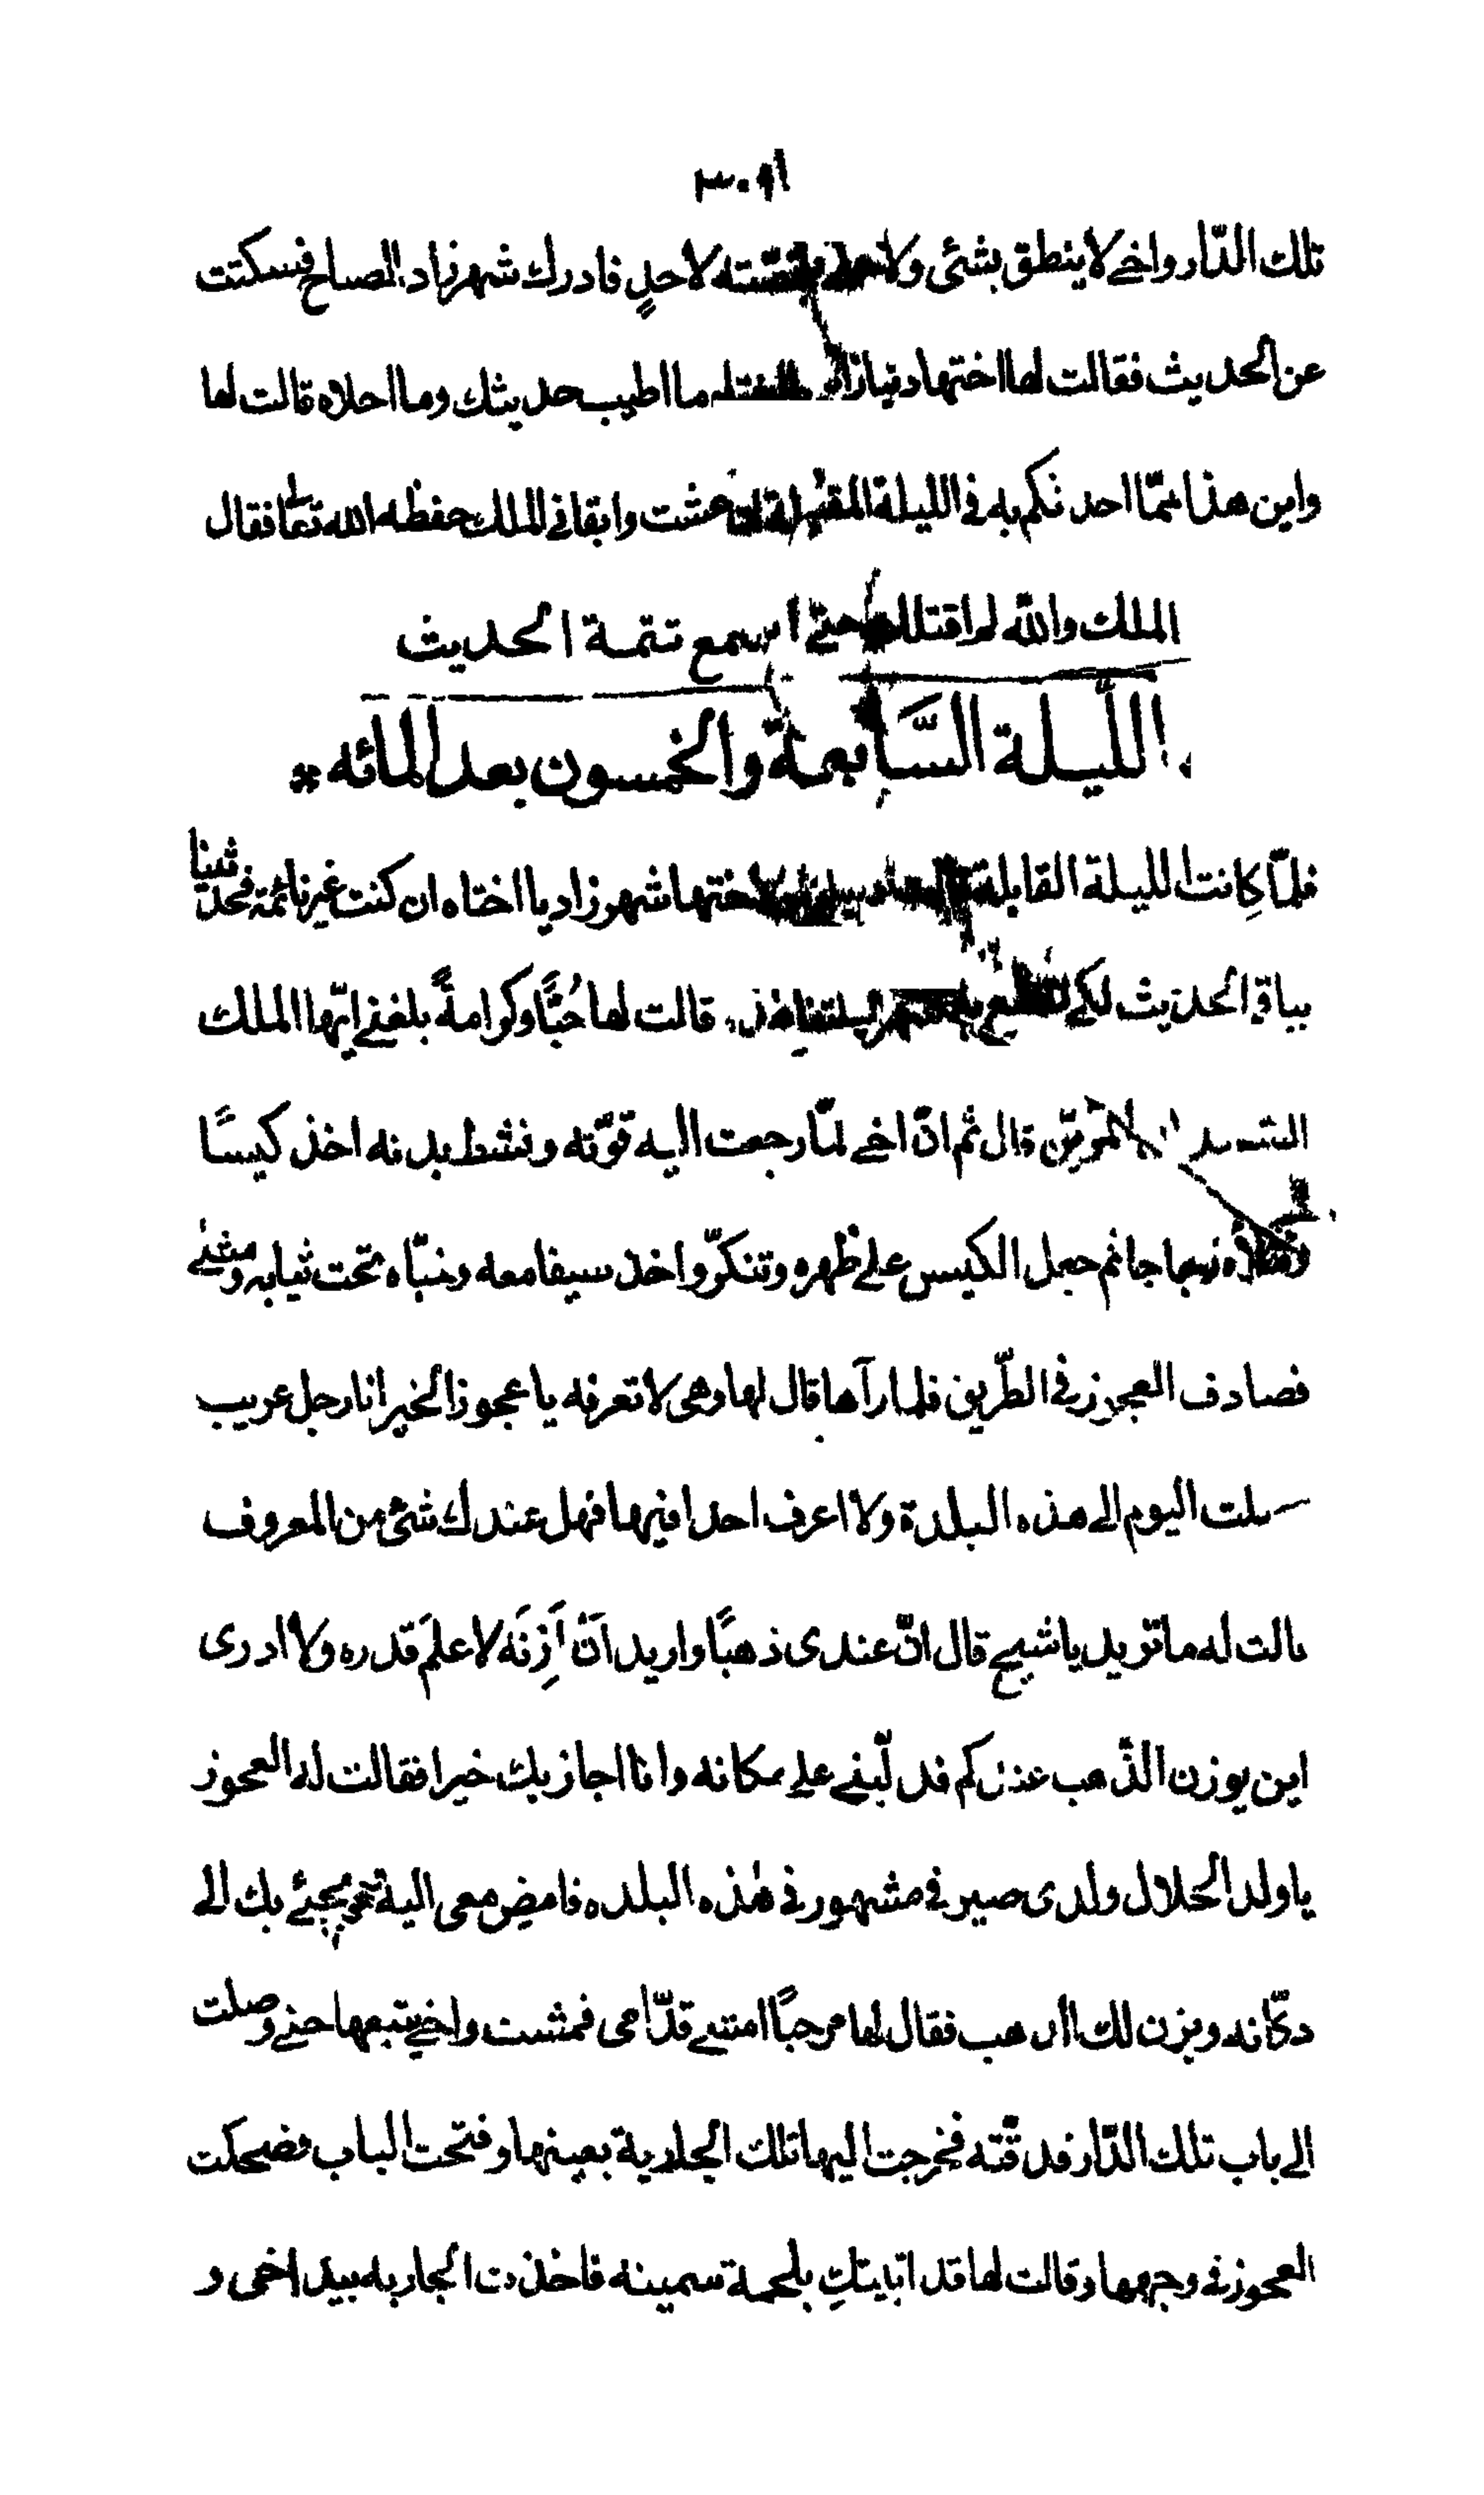 تلك الدّار واخي لا ينطق بشئ ولا لاحدٍ فادرك شهرزاد الصباح فسكتت
عن الحديث فقالت لها اختها دنيازاد ما اطيب حديثك وما احلاه قالت لها
واين هذا ممّا احدثكم به في الليلة المقبلة ان عشت وابقاني الملك حفظه الله تعا فقال
الملك والله لم اقتلها حتى اسمع تتمة الحديث
اللّيلة السّابعة والخمسون بعد المائه *
فلمّا كانت الليلة القابلة لاختها شهرزاد يا اختاه ان كنت غير نائمة فحدّثينا
بباقي الحديث لكي ليلتنا هذه قالت لها حُبًّا وكرامةً بلغني ايّها الملك
قال ثم انّ اخي لمّا رجعت اليه قوّته ونشط بدنه اخذ كيسًا
زجاجا ثم حمل الكيس على ظهره وتنكّر واخذ سيفا معه وخبّاه تحت ثيابه ومشى
فصادف العجوز في الطّريق فلما رآها قال لها وهى لا تعرفه يا عجوز الخير انا رجل غريب
وصلت اليوم الى هذه البلدة ولا اعرف احدا فيها فهل عندك شئ من المعروف
قالت له ما تريد يا شيخ قال انّ عندى ذهبًا واريد انّ اَزِنَهَ لاعلمَ قدره ولا ادرى
اين يوزن الذّهب عندكم فدلّيني على مكانه وانا اجازيك خيرا فقالت له العجوز
يا ولد الحلال ولدى صيرفي مشهور في هٰذه البلده فامضِ معى اليه حتى يجيئ بك الى
دكّانه ويزن لك الذهب فقال لها مرحبًا امشى قدّامى فمشت واخي يتبعها حتى وصلت
الى باب تلك الدّار فدقّته فخرجت اليها تلك الجارية بعينها وفتحت الباب فضحكت
العجوز في وجهها وقالت لها قد اتيتكِ بلحمة سمينه فاخذت الجاريه بيد اخى و